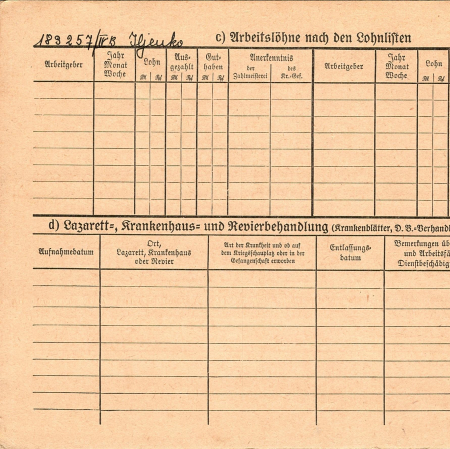 183257/IVB Iljenko c) Arbeitslöhne nach den Lohnlisten
Arbeitgeber
Jahr
Monat
Woche
Lohn
Aus-
gezahlt
Gut-
haben
Anerkenntnis
der
Zahlmeisterei
des
Kr.-Gef.
Arbeitgeber
Jahr
Monat
Woche
Lohn
d) Lazarett-, Krankenhaus- und Revierbehandlung (Krankenblätter, D. B.-Verhandl
Aufnahmedatum
Ort,
Lazarett, Krankenhaus
oder Revier
Art der Krankheit und ob auf
dem Kriegsschauplatz oder in der
Gefangenschaft erworden
Entlassungs-
datum
Bemerkungen üb
und Arbeitsfä
Dienstbeschädig